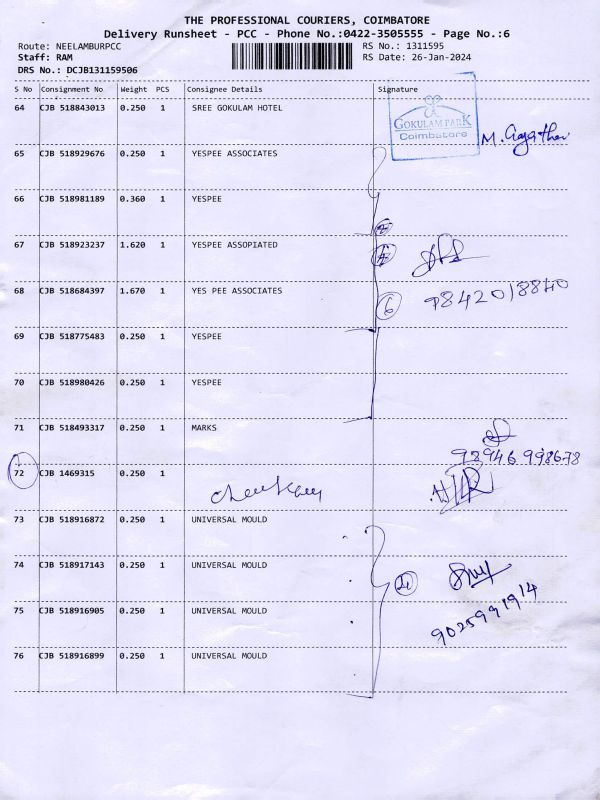 THE PROFESSIONAL COURIERS, COIMBATORE
Delivery Runsheet - PCC - Phone No.:0422-3505555 - Page No.:6
Route: NEELAMBURPCC RS No.: 1311595
Staff: RAM RS Date: 26-Jan-2024
DRS No.: DCJB131159506
S No Consignment No Weight PCS Consignee Details Signature
64 CJB 518843013 0.250 1 SREE GOKULAM HOTEL
GOKULAM PARK
Coimbatore
65 CJB 518929676 0.250 1 YESPEE ASSOCIATES
66 CJB 518981189 0.360 1 YESPEE
67 CJB 518923237 1.620 1 YESPEE ASSOPIATED
68 CJB 518684397 1.670 1 YES PEE ASSOCIATES
6 9842018840
69 CJB 518775483 0.250 1 YESPEE
70 CJB 518980426 0.250 1 YESPEE
71 CJB 518493317 0.250 1 MARKS
98946 998678
72 CJB 1469315 0.250 1
73 CJB 518916872 0.250 1 UNIVERSAL MOULD
74 CJB 518917143 0.250 1 UNIVERSAL MOULD
75 CJB 518916905 0.250 1 UNIVERSAL MOULD
9025991914
76 CJB 518916899 0.250 1 UNIVERSAL MOULD